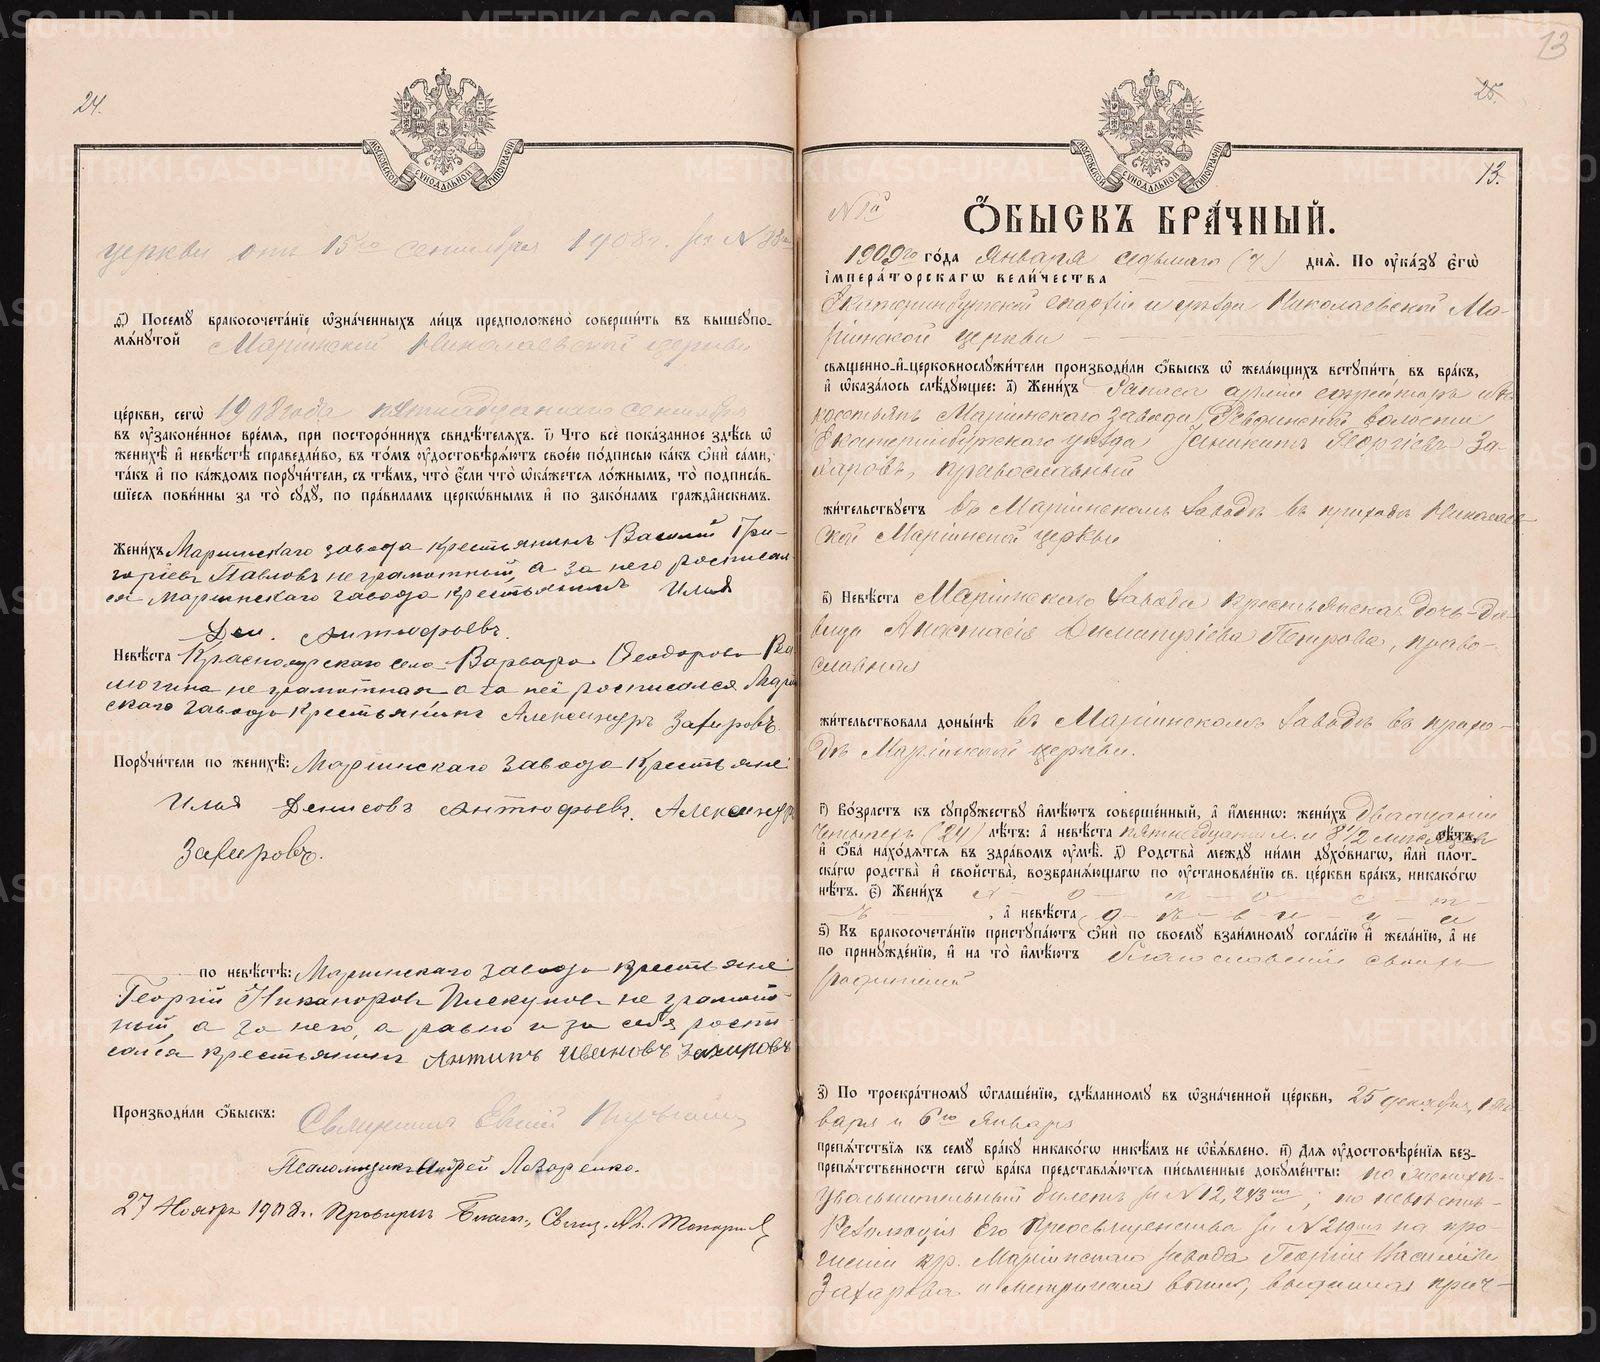 24.
МОСКОВСКОЙ СѴНОДАЛЬНОЙ ТИПОГРАФІИ
церкви отъ 15го сентября 1908 г. за № 88
ѕ҃) Посемꙋ бракосочета́нїе ѡ҆зна́ченныхъ ли́цъ предположено̀ соверши́ть въ вышеꙋпо-
мѧ́нꙋтой Маріинской Николаевской церкви
це́ркви, сегѡ̀ 1908 года пятнадцатаго сентября
въ ᲂу҆зако́ненное вре́мѧ, при посторо́ннихъ свидѣ́телѧхъ. і҃) Что̀ всѐ пока́занное здѣ́сь ѡ҆
женихѣ̀ и҆ невѣ́стѣ справедли́во, въ то́мъ ᲂу҆достовѣрѧ́ютъ свое́ю по́дписью ка́къ ѻ҆нѝ са́ми,
та́къ и҆ по ка́ждомъ порꙋчи́тели, съ тѣ́мъ, что̀ є҆́сли что̀ ѡ҆ка́жетсѧ ло́жнымъ, то̀ подписа́в-
шїесѧ пови́нны за то̀ сꙋдꙋ̀, по пра́виламъ церкѡ́внымъ и҆ по зако́намъ гражда́нскимъ.
Жени́хъ Маріинскаго завода крестьянинъ Василій Гри-
горіевъ Павловъ неграмотный, а за него росписал-
ся Маріинскаго завода крестьянинъ Илья
Ден. Антюфьевъ.
Невѣ́ста Красноярскаго села Варвара Ѳеодорова
не грамотная а за неё росписался Марiин
скаго завода крестьянинъ Александръ Захаровъ.
Порꙋчи́тели по женихѣ̀: Маріинскаго завода крестьяне
Илья Денисовъ Антюфьевъ. Александръ
Захаровъ.
по невѣ́стѣ: Маріинскаго завода крестьяне
Георгій Никаноровъ Пискуновъ не грамот-
ный, а за него, а равно и за себя роспи-
сался крестьянинъ Антипъ Ивановъ Захаровъ
Производи́ли ѻ҆́быскъ: Священникъ Евгній
Псаломщикъ Андрей Лазаренко.
27 Ноября 1908 г. Провѣрилъ Благ., Свящ. Ал. Топорковъ
13
25.
МОСКОВСКОЙ СѴНОДАЛЬНОЙ ТИПОГРАФІИ
13.
№ 1й
Ѻ҆БЫСКЪ БРА́ЧНЫЙ.
1909го го́да Января седьмого (7) днѧ̀. По ᲂу҆ка́зꙋ Є҆гѡ̀
і҆мпера́торскагѡ вели́чества
Екатеринбургской епархіи и уѣзда Николаевской Ма-
ріинской церкви
свѧще́нно-и҆-церковнослꙋжи́тели производи́ли ѻ҆́быскъ ѡ҆ жела́ющихъ встꙋпи́ть въ бра́къ,
и҆ ѡ҆каза́лось слѣ́дꙋющее: а҃) Жени́хъ Запаса арміи ефрейторъ изъ
крестьянъ Маріинскаго завода, Ревдинской волости
Екатеринбургскаго уѣзда Георгіевъ За-
харовъ, православный
жи́тельствꙋетъ въ Маріинскомъ заводѣ въ приходѣ Николаев
ской Маріинской церкви
в҃) Невѣ́ста Маріинскаго завода крестьянская дочь-дѣ-
вица Анастасія Димитріева Петрова, право-
славная
жи́тельствовала доны́нѣ въ Маріинскомъ заводѣ въ прихо-
дѣ Маріинской церкви.
г҃) Во́зрастъ къ сꙋпрꙋ́жествꙋ и҆мѣ́ютъ соверше́нный, а҆ и҆́меннѡ: жени́хъ двадцати
четырехъ (24) лѣ́тъ: а҆ невѣ́ста пятнадцати л. и 8½ мѣсяцевъ лѣ́тъ,
и҆ ѻ҆́ба нахо́дѧтсѧ въ здра́вомъ ᲂу҆мѣ̀. д҃) Родства̀ междꙋ̀ ни́ми дꙋхо́внагѡ, и҆лѝ пло́т-
ска́гѡ родства̀ и҆ сво́йства, возбранѧ́ющагѡ по ᲂу҆становле́нїю св. це́ркви бра́къ, никако́гѡ
нѣ́тъ. є҃) Жени́хъ х — о — л — о — с — т —
ъ — , а҆ невѣ́ста д — ѣ — в — и — ц — а
ѕ҃) Къ бракосочета́нїю пристꙋпа́ютъ ѻ҆нѝ по своемꙋ̀ взаи́мномꙋ согла́сїю и҆ жела́нїю, а҆ не
по принꙋжде́нїю, и҆ на то̀ и҆мѣ́ютъ благословеніе своихъ
родителей
з҃) По троекра́тномꙋ ѡ҆глаше́нїю, сдѣ́ланномꙋ въ ѡ҆зна́ченной це́ркви, 25 декабря, 1 Ян
варя и 6го Января
препѧ́тствїѧ къ семꙋ̀ бра́кꙋ никако́гѡ никѣ́мъ не ѡ҆б̾ѧ́влено. и҃) Для ᲂу҆достовѣре́нїѧ без-
препѧ́тственности сегѡ̀ бра́ка представлѧ́ютсѧ пи́сьменные докꙋме́нты: по женихѣ-
увольнительный билетъ за № 12,243мъ; по невѣстѣ-
Резолюція Его Преосвященства за № 219мъ на про-
шеніи кр. Маріинскаго завода Георгія Василіева
Захарова и метрическая выпись, выданная прич-